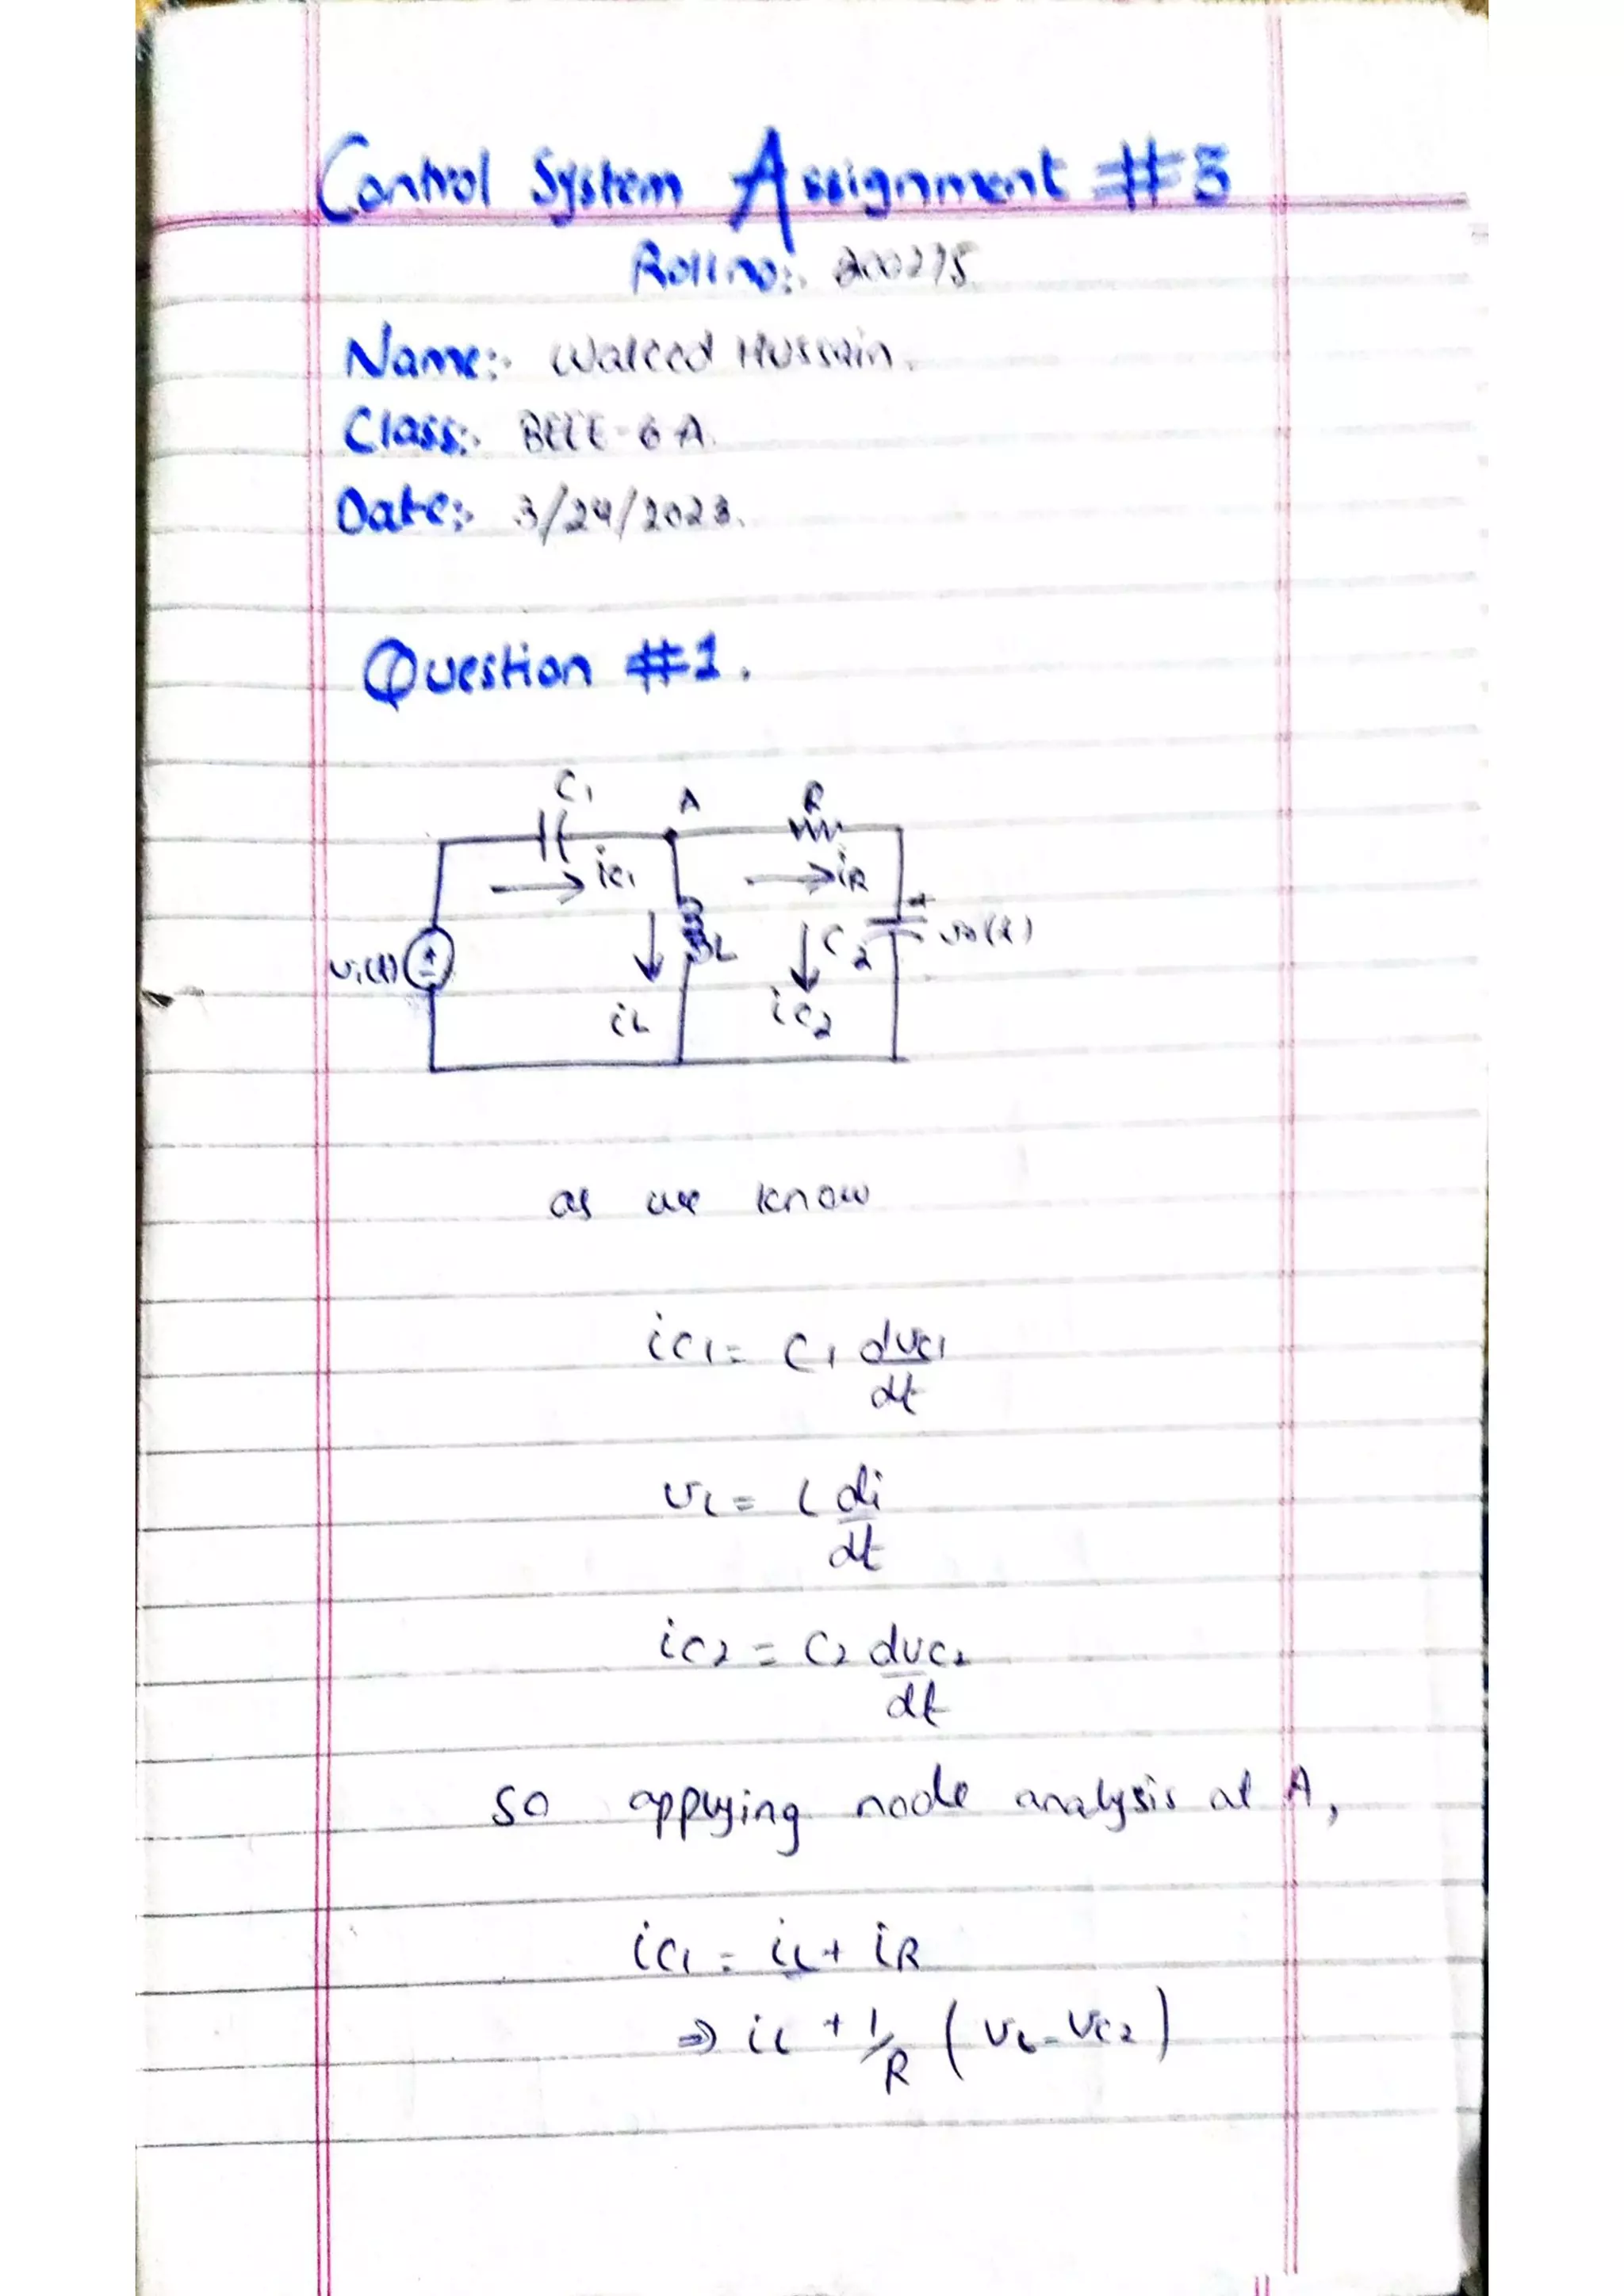 Control System Assignment #3
Roll no:. 200275.
Name:. Waleed Hussain.
Class:. BEEE-6A.
Date:. 3/24/2023.
Question #1.
C1 A R
iC1 iR
vi(t) + - L C2 + vo(t)
iL iC2
as we know
iC1 = C1 dvC1/dt
vL = L di/dt
iC2 = C2 dvC2/dt
So applying node analysis at A,
iC1 = iL + iR
⇒ iL + 1/R (vL - vC2)